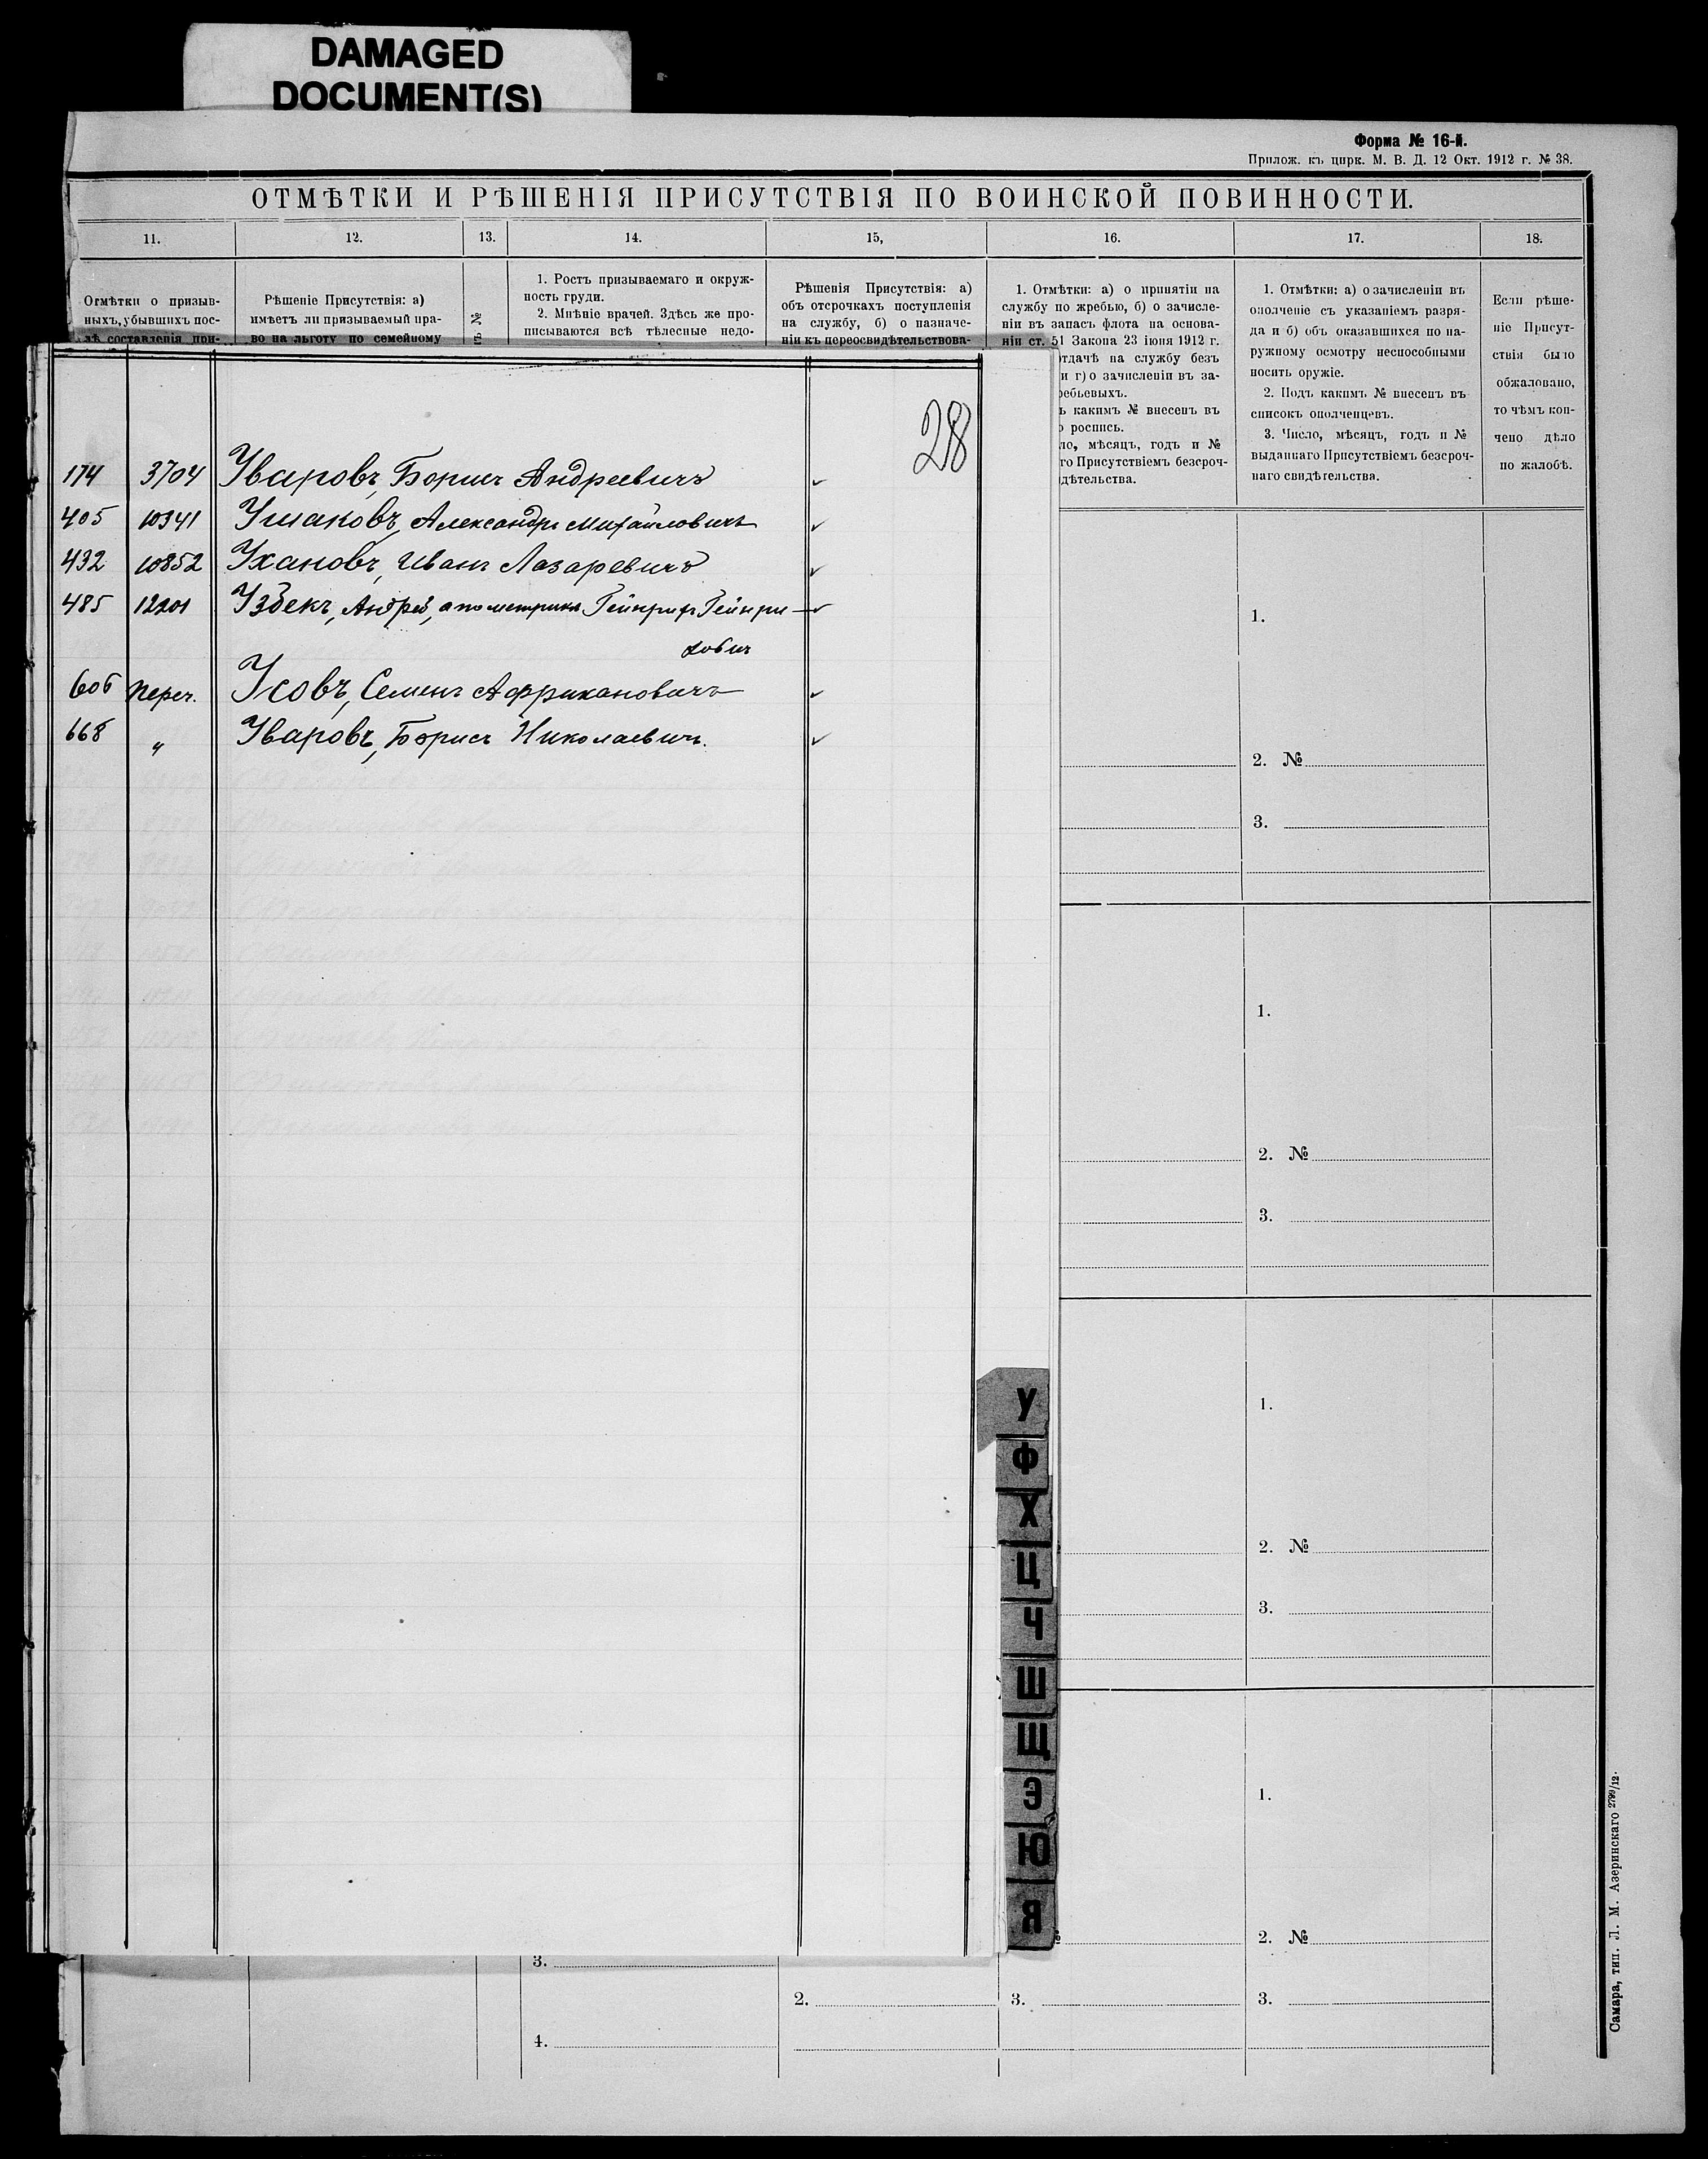 DAMAGED
DOCUMENT(S)
Форма № 16-й.
Прилож. къ цирк. М. В. Д. 12 Окт. 1912 г. № 38.
ОТМѢТКИ И РѢШЕНІЯ ПРИСУТСТВІЯ ПО ВОИНСКОЙ ПОВИННОСТИ.
11. 12. 13. 14. 15, 16. 17. 18.
Отмѣтки о призыв-
ныхъ, убывшихъ пос-
лѣ составленія при-
Рѣшеніе Присутствія: а)
имѣетъ ли призываемый пра-
во на льготу по семейному
№
1. Ростъ призываемаго и окруж-
ность груди.
2. Мнѣніе врачей. Здѣсь же про-
писываются всѣ тѣлесные недо-
Рѣшенія Присутствія: а)
объ отсрочкахъ поступленія
на службу, б) о назначе-
ніи къ переосвидѣтельствова-
1. Отмѣтки: а) о принятіи на
службу по жребью, б) о зачисле-
ніи въ запасъ флота на основа-
ніи ст. 51 Закона 23 іюня 1912 г.
отдачѣ на службу безъ
и г) о зачисленіи въ за-
ребьевыхъ.
ь какимъ № внесенъ въ
ю роспись.
ло, мѣсяцъ, годъ и №
го Присутствіемъ безсроч-
дѣтельства.
1. Отмѣтки: а) о зачисленіи въ
ополченіе съ указаніемъ разря-
да и б) объ оказавшихся по на-
ружному осмотру неспособными
носить оружіе.
2. Подъ какимъ № внесенъ въ
списокъ ополченцевъ.
3. Число, мѣсяцъ, годъ и №
выданнаго Присутствіемъ безсроч-
наго свидѣтельства.
Если рѣше-
ніе Присут-
ствія было
обжаловано,
то чѣмъ кон-
чено дѣло
по жалобѣ.
28
174 3704 Уваровъ, Борисъ Андреевичъ
405 10341 Ушаковъ, Александръ Михайловичъ
432 10852 Ухановъ, Иванъ Лазаревичъ
485 12201 Узбекъ, Андрей, а по метрикѣ Гейнрихъ Гейнри-
ховичъ
606 Переч. Усовъ, Семенъ Африкановичъ
668 " Уваровъ, Борисъ Николаевичъ.
1.
2. №
3.
1.
2. №
3.
1.
2. №
3.
1.
2. №
3.
У
Ф
Х
Ц
Ч
Ш
Щ
Э
Ю
Я
3.
2.
3.
4.
Самара, тип. Л. М. Азеринскаго 2799/12.